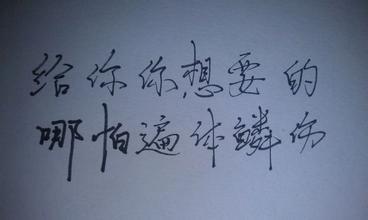 给你你想要的
哪怕遍体鳞伤